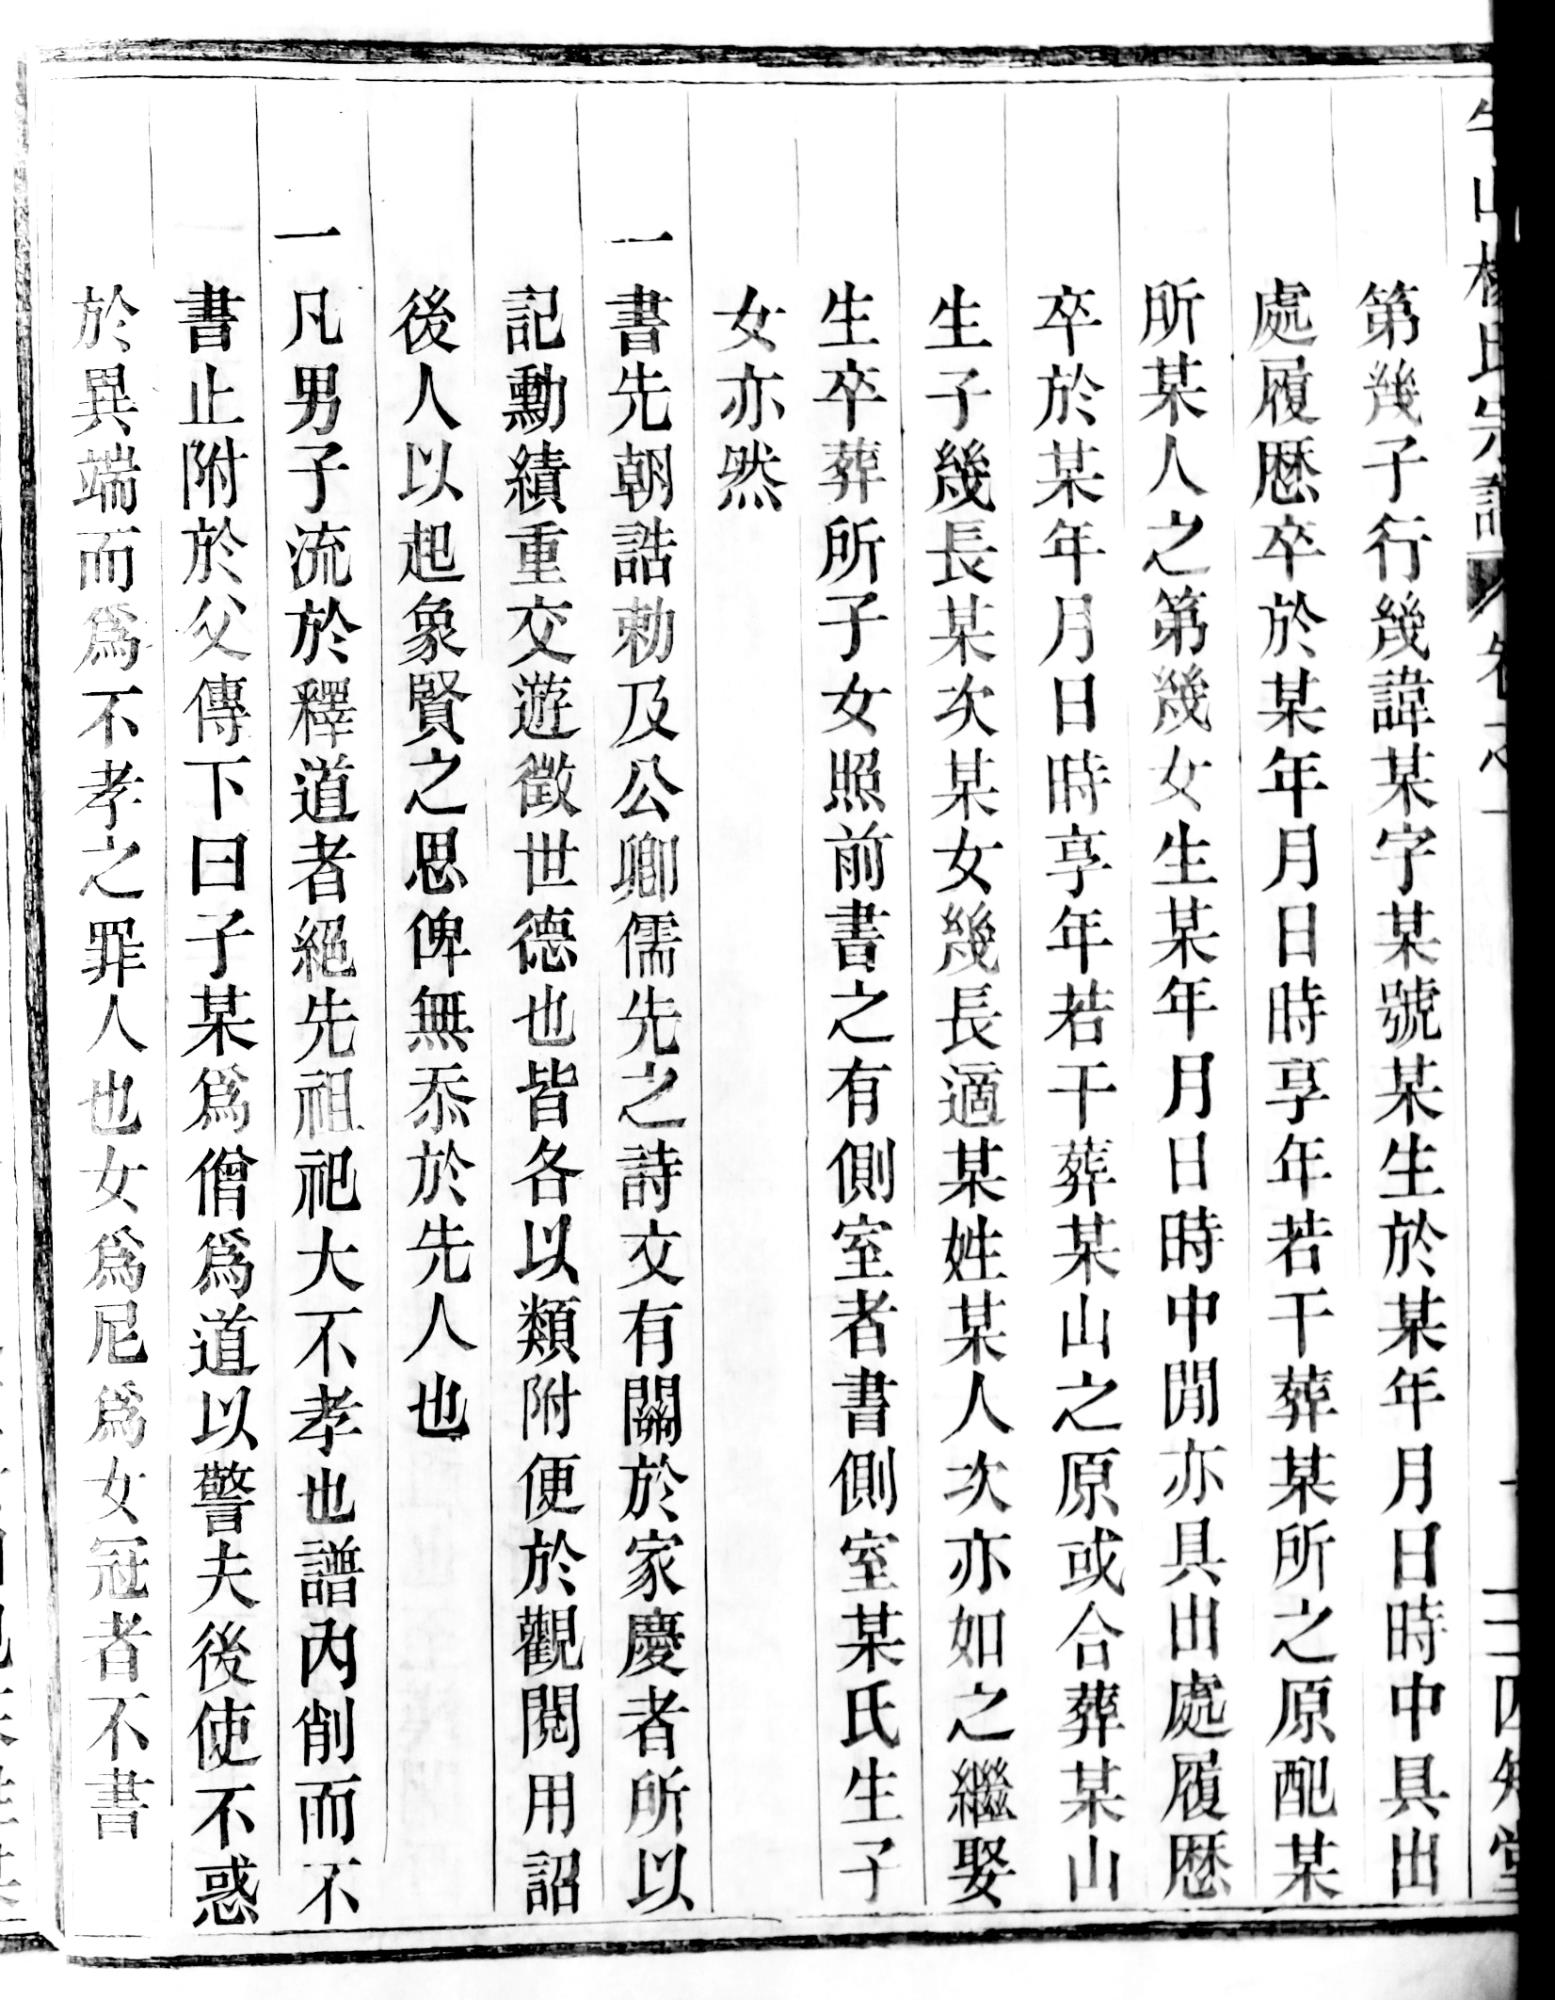 山楊氏宗譜 卷之一 四知堂
第幾子行幾諱某字某號某生於某年月日時中具出
處履歷卒於某年月日時享年若干葬某所之原配某
所某人之第幾女生某年月日時中閒亦具出處履歷
卒於某年月日時享年若干葬某山之原或合葬某山
生子幾長某次某女幾長適某姓某人次亦如之繼娶
生卒葬所子女照前書之有側室者書側室某氏生子
女亦然
一書先朝誥勅及公卿儒先之詩文有關於家慶者所以
記勳績重交遊徵世德也皆各以類附便於觀閱用詔
後人以起象賢之思俾無忝於先人也
一凡男子流於釋道者絕先祖祀大不孝也譜內削而不
書止附於父傳下曰子某爲僧爲道以警夫後使不惑
於異端而爲不孝之罪人也女爲尼爲女冠者不書